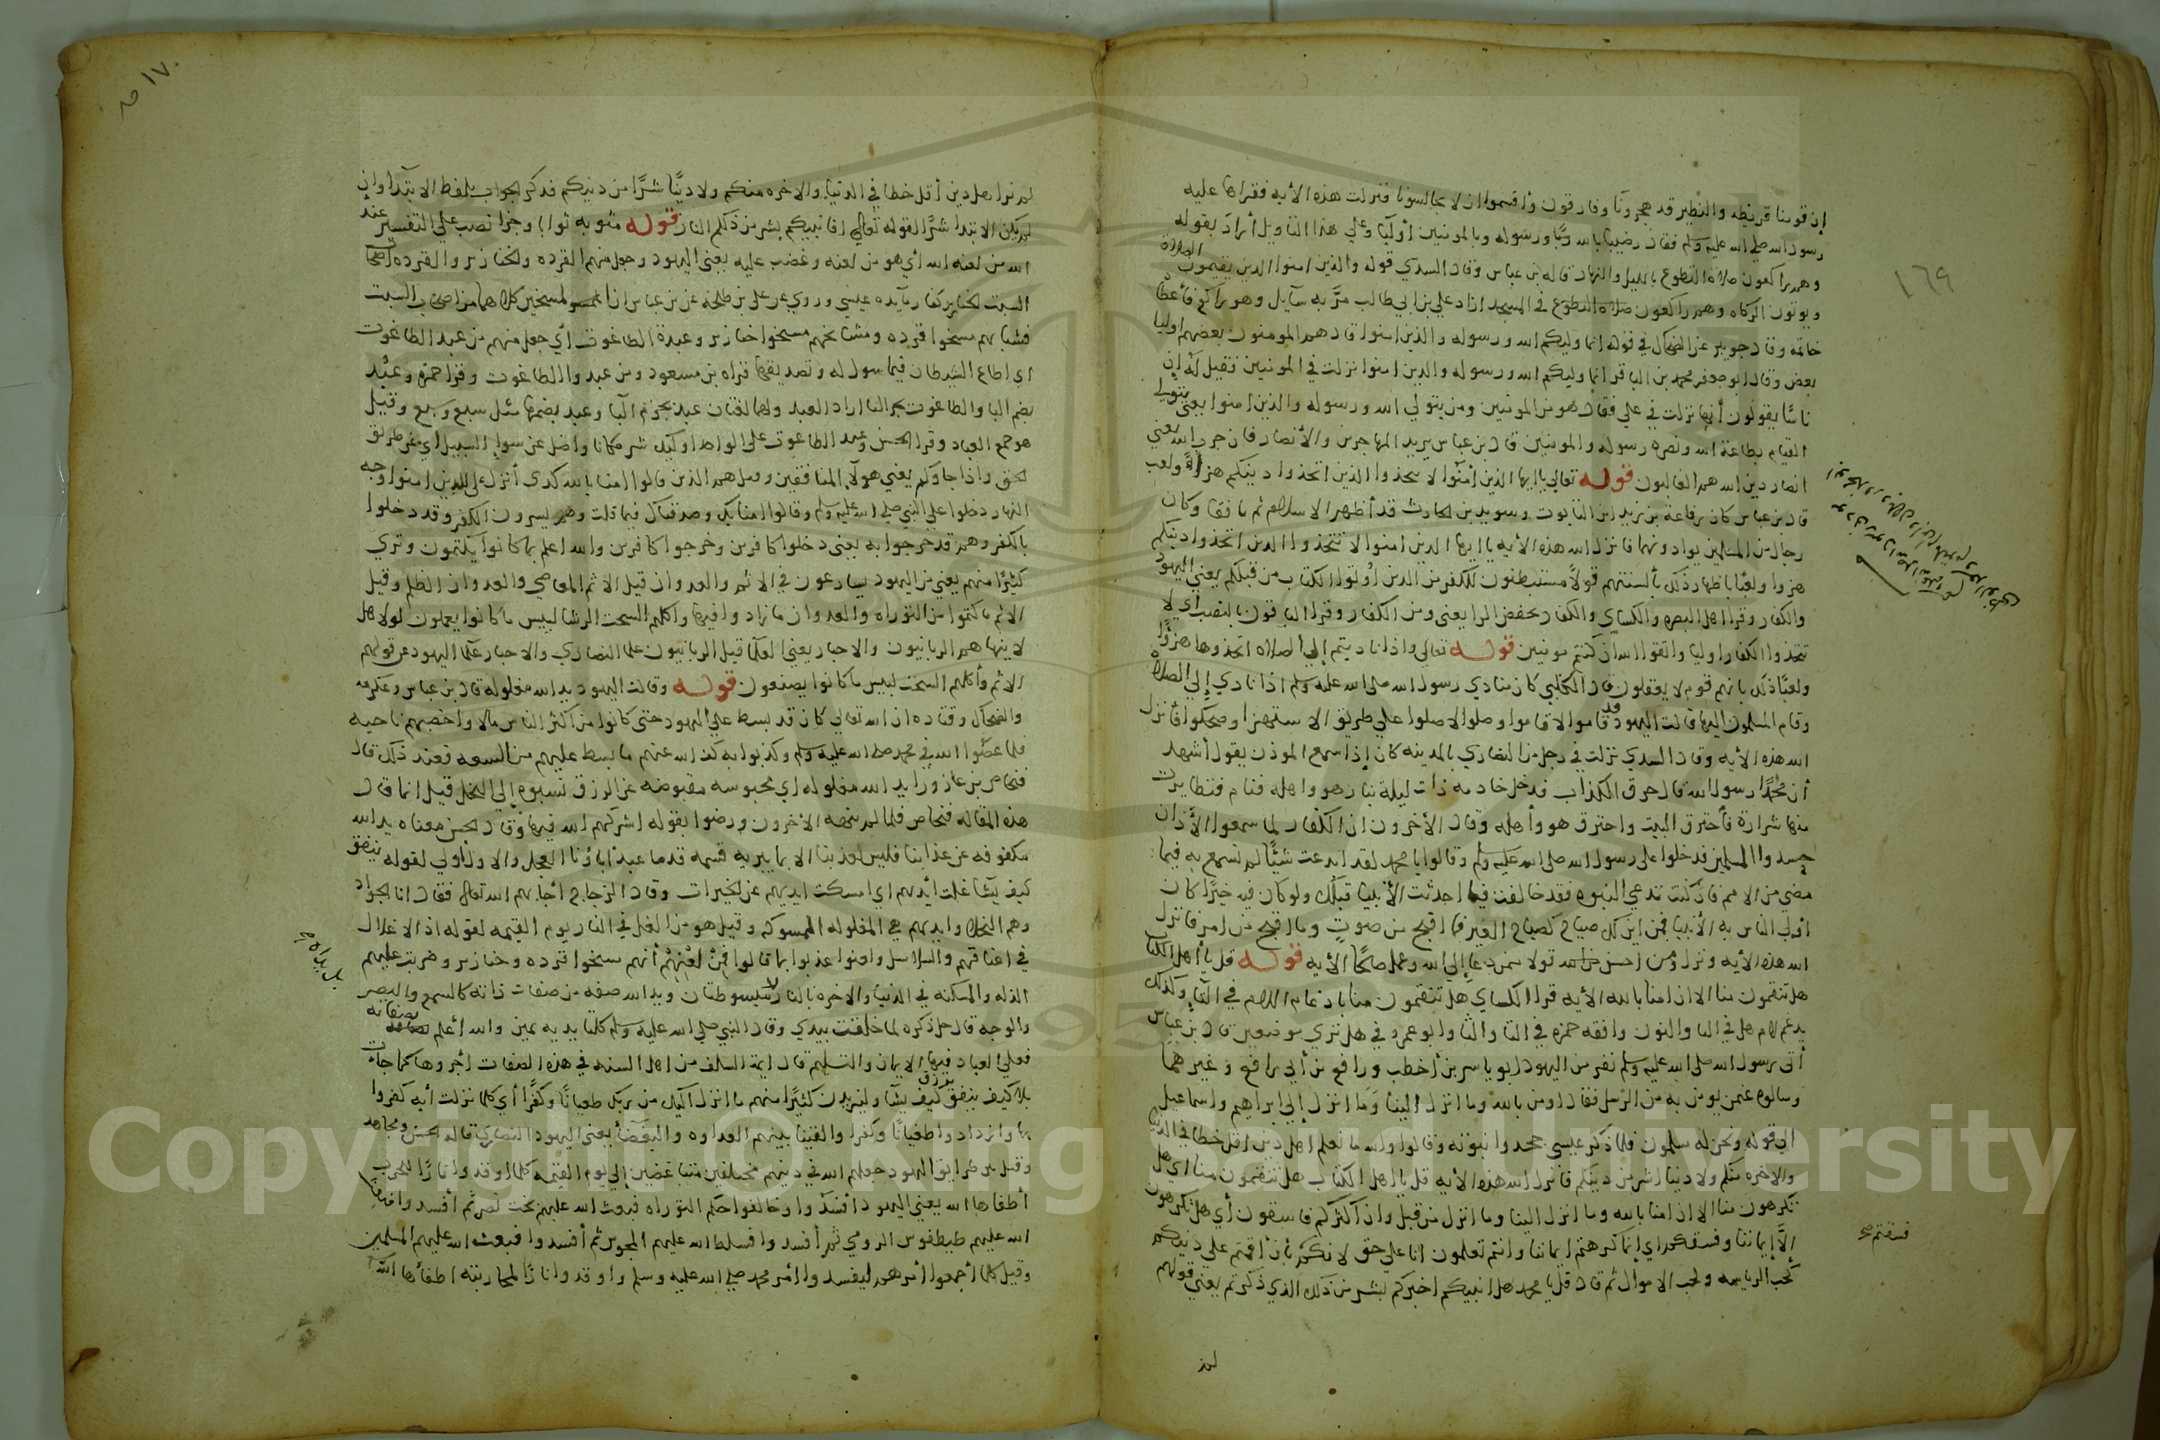 ١٦٩
إن قومنا قريظه والنظير قد هجرونا وفارقونا وأقسموا ان لا يجالسونا فنزلت هذه الأيه فقراها عليه
رسول الله صلي الله عليه وسلم فقال رضينا بالله ربًّا وبرسوله وبالمومنين أوليا وعلي هذا التاويل أراد بقوله
وهم راكعون صلاة التطوع بالليل والنهار قاله بن عباس وقال السدي قوله والذين امنوا الذين يقيمون الصلاة
ويوتون الزكاه وهم راكعون اراد علي بن ابي طالب مرَّ به سآيل وهو راكع في المسجد فأعطا
خاتمه وقال جويبر عن الضحاك في قوله انما وليكم الله ورسوله والذين امنوا قال هم المومنون بعضهم اوليا
بعض وقال ابو جعفر محمد بن الباقر انما وليكم الله ورسوله والذين امنوا نزلت في المومنين فقيل له إن
ناسًا يقولون أنها نزلت في علي فقال هو من المومنين ومن يتولي الله ورسوله والذين امنوا يعني يتولي
القيام بطاعة الله ونصره رسوله والمومنين قال بن عباس يريد المهاجرين والأنصار فان حزب الله يعني
انصار دين الله هم الغالبون قوله تعالي ياايها الذين أمنوا لا تتخذوا الذين اتخذوا دينكم هزوًا ولعبا
قال بن عباس كان رفاعة بن زيد ابن التابوت وسويد بن الحارث قد أظهرا الاسلام ثم نافقا وكان
رجال من المسلمين يوادونهما فانزل الله هذه الأيه ياايها الذين امنوا لا تتخذوا الذين اتخذوا دينكم
هزوا ولعبًا باظهار ذلك بألسنتهم قولا وهم مستبطنون للكفر من الذين أوتوا الكتاب من قبلكم يعني اليهود
والكفار وقرا اهل البصره والكساي والكفار بخفض الرا يعني ومن الكفار وقرا الباقون بالنصب اي لا
تتخذوا الكفار اوليا واتقوا الله ان كنتم مومنين قوله تعالي واذا ناديتم إلي الصلاه اتخذوها هزوًا
ولعبًا ذلك بانهم قوم لا يعقلون قال الكلبي كان منادي رسول الله صلي الله عليه وسلم اذا نادي إلي الصلاة
وقام المسلمون اليها قالت اليهود قد قاموا لا قاموا وصلوا لا صلوا علي طريق الاستهزا وضحكوا فأنزل
الله هذه الأيه وقال السدي نزلت في رجل من النصاري بالمدينه كان إذا سمع الموذن يقول أشهد
أن محمدًا رسول الله قال حرق الكذاب فدخل خادمه ذات ليلة بنار وهو واهله نيام فتطايرت
منها شرارة فأحترق البيت واحترق هو وأهله وقال الأخرون ان الكفار لما سمعوا الأذان
حسدوا المسلمين فدخلوا علي رسول الله صلي الله عليه وسلم وقالوا يا محمد لقد ابدعت شيًّا لم نسمع به فيما
مضي من الامم فان كنت تدعي النبوه فقد خالفت فيما احدثت الأنبيا قبلك ولو كان فيه خيرًا كان
أولي الناس به الأنبيا فمن اين لك صياح كصياح العير فما اقبح من صوتٍ وما اقبح من امر فانزل
الله هذه الأيه ونزل ومن احسن قولا ممن دعا إلي الله وعمل صالحًا الأيه قوله قل يا أهل الكتاب
هل تنقمون منا الا ان امنا بالله الأيه قرا الكساي هل تنقمون منا بادغام اللام في التآء وكذلك
يدغم لام هل في التا والنون وافقه حمزه في التا والثا وابو عمرو في هل تري موضعين قال بن عباس
أتي رسول الله صلي الله عليه وسلم نفر من اليهود ابو ياسر بن أخطب ورافع بن أبي رافع وغيرهما
وسالوه عمن يومن به من الرسل فقال اومن بالله وما انزل الينا وَمَا انزل إلي ابراهيم واسماعيل
إلي قوله ونحن له مسلمون فلما ذكر عيسي جحدوا نبوته وقالوا والله ما نعلم اهل دين اقل حظا في الدنيا
والاخره منكم ولا دينا شر من دينكم فانزل الله هذه الأيه قل يا اهل الكتاب هل تنقمون منا اي هل
تكرهون منا الا ان امنا بالله وما انزل الينا وما انزل من قبل وان أكثركم فاسقون أي هل تكرهون
إلاَّ إيماننا وفسقكم اي إنما كرهتم ايماننا وانتم تعلمون انا علي حق لانكم بأن أقمتم علي دينكم
لحب الرياسه ولحب الاموال ثم قال قل يا محمد هل انبيكم اخبركم بشر من ذلك الذي ذكرتم يعني قولهم
فسقتم صح
لم نر
١٧٠
لم نر اهل دين أقل حظا في الدنيا والاخره منكم ولا دينًا شرًّا من دينكم فذكر الجواب بلفظ الابتدا وإن
لم يكن الابتدا شرًّا لقوله تعالي افانبيكم بشر من ذلكم النار قوله مثوبه ثوابا وجزا نصب علي التفسير عند
الله من لعنه الله أي هو من لعنه وغضب عليه يعني اليهود وجعل منهم القرده والخنازير والقرده اصحاب
السبت والخنازير كفار مآيده عيسي وروي عن علي بن طلحه عن بن عباس ان الممسوخين كلاهما من اصحاب السبت
فشبابهم مسخوا قرده ومشايخهم مسخوا خنازير وعبدة الطاغوت أي جعل منهم من عبد الطاغوت
اي اطاع الشيطان فيما سول له وتصديقها قراه بن مسعود ومن عبدوا الطاغوت وقرا حمزه وعبُد
بضم البا والطاغوت بجر التا اراد العبد وهما لغتان عبد بجزم البا وعبد بضمها مثل سبع وسبع وقيل
هو جمع العباد وقرا الحسن وعبد الطاغوت علي الواحد اوليك شر مكانا واضل عن سوا السبيل اي عن طريق
الحق واذا جاوكم يعني هولآ المنافقين وقيل هم الذين قالوا امنا بالله كذي أنزل علي الذين امنوا وجه
النهار دخلوا علي النبي صلي الله عليه وسلم وقالوا امنا بك وصدقناك فيما قلت وهم يسرون الكفر وقد دخلوا
بالكفر وهم قد خرجوا به يعني دخلوا كافرين وخرجوا كافرين والله اعلم بما كانوا يكتمون وتري
كثيرًا منهم يعني من اليهود يسارعون في الاثم والعدوان قيل الاثم المعاصي والعدوان الظلم وقيل
الاثم ما كتموا من التوراه والعدوان ما زادوا فيها واكلهم السحت الرشا لبيس ما كانوا يعملون لولا هل
لا ينهاهم الربانيون والاحبار يعني العلما قيل الربانيون علما النصاري والاحبار علما اليهود عن قولهم
الاثم وأكلهم السحت لبيس ما كانوا يصنعون قوله وقالت اليهود يد الله مغلوله قال بن عباس وعكرمه
والضحاك وقتاده ان الله تعالي كان قد بسط علي اليهود حتي كانوا من أكثر الناس مالا واخصبهم ناحيه
فلما عصَوا الله في محمد صلي الله عليه وسلم وكذبوا به كف الله عنهم ما بسط عليهم من السعه فعند ذلك قال
فنحاص بن عازورا يد الله مغلوله اي محبوسه مقبوضه عن الرزق نسبوه إلي البخل قيل انما قال
هذه المقاله فنحاص فلما لم ينهه الأخرون ورضوا بقوله اشركهم الله فيها وقال الحسن معناه يد الله
مكفوفه عن عذابنا فليس يعذبنا الا بما يبر به قسمه قدر ما عبد أباؤنا العجل والاول اولي لقوله ينفق
كيف يشا غلت ايديهم اي امسكت ايديهم عن الخيرات وقال الزجاج اجابهم الله تعالي فقال انا الجواد
وهم البخلا وايديهم هي المغلوله الممسوكه وقيل هو من الغل في النار يوم القيمه لقوله اذ الاغلال
في اعناقهم والسلاسل ولعنوا عذبوا بما قالوا فمن لعنهم أنهم مسخوا قرده وخنازير وضربت عليهم
الذله والمسكنه في الدنيا والاخره بالنار بل يداه مبسوطتان ويد الله صفه من صفات ذاته كالسمع والبصر
والوجه قال جل ذكره لما خلقت بيدي وقال النبي صلي الله عليه وسلم كلتا يديه يمين والله أعلم بصفاته
فعلي العباد فيها الايمان والتسليم قال ايمة السلف من اهل السنه في هذه الصفات أمروها كما جات
بلا كيف ينفق يرزق كيف يشا وليزيدن كثيرًا منهم ما انزل اليك من ربك طغيانًا وكفرًا أي كلما نزلت أيه كفروا
بها وازدادوا طغيانًا وكفرا والقينا بينهم العداوه والبغضا يعني اليهود والنصاري قاله الحسن ومجاهد
وقيل بين طوايف اليهود جعلهم الله في دينهم مختلفين متباغضين إلي يوم القيمه كلما اوقدوا نارًا للحرب
أطفاها الله يعني اليهود افسدوا وخالفوا حكم التوراه فبعث الله عليهم بخت نصر ثم أفسدوا فبعث
الله عليهم طيطفوس الرومي ثم أفسدوا فسلط الله عليهم المجوس ثم أفسدوا فبعث الله عليهم المسلمين
وقيل كلما أجمعوا أمرهم ليفسدوا أمر محمد صلي الله عليه وسلم واوقدوا نارًا لمحاربته اطفأها الله
بل يداه صح
Copyright © King Saud University
1957